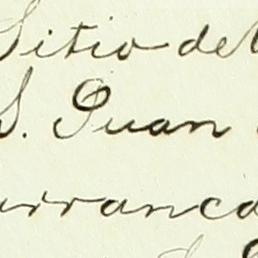 Sitio del
S. Juan
arranca